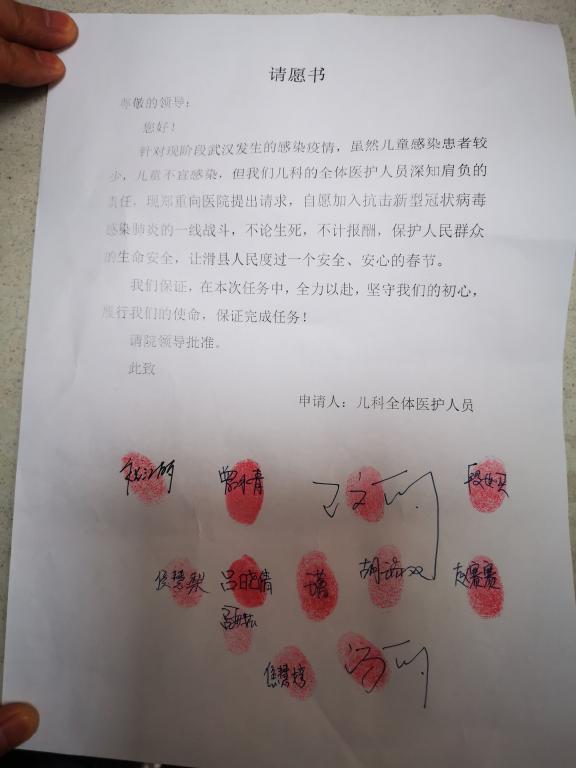 请愿书
尊敬的领导：
您好！
针对现阶段武汉发生的感染疫情，虽然儿童感染患者较
少，儿童不宜感染，但我们儿科的全体医护人员深知肩负的
责任，现郑重向医院提出请求，自愿加入抗击新型冠状病毒
感染肺炎的一线战斗，不论生死，不计报酬，保护人民群众
的生命安全，让滑县人民度过一个安全、安心的春节。
我们保证，在本次任务中，全力以赴，坚守我们的初心，
履行我们的使命，保证完成任务！
请院领导批准。
此致
申请人：儿科全体医护人员
侯慧梨 吕晓倩 赵赛赛